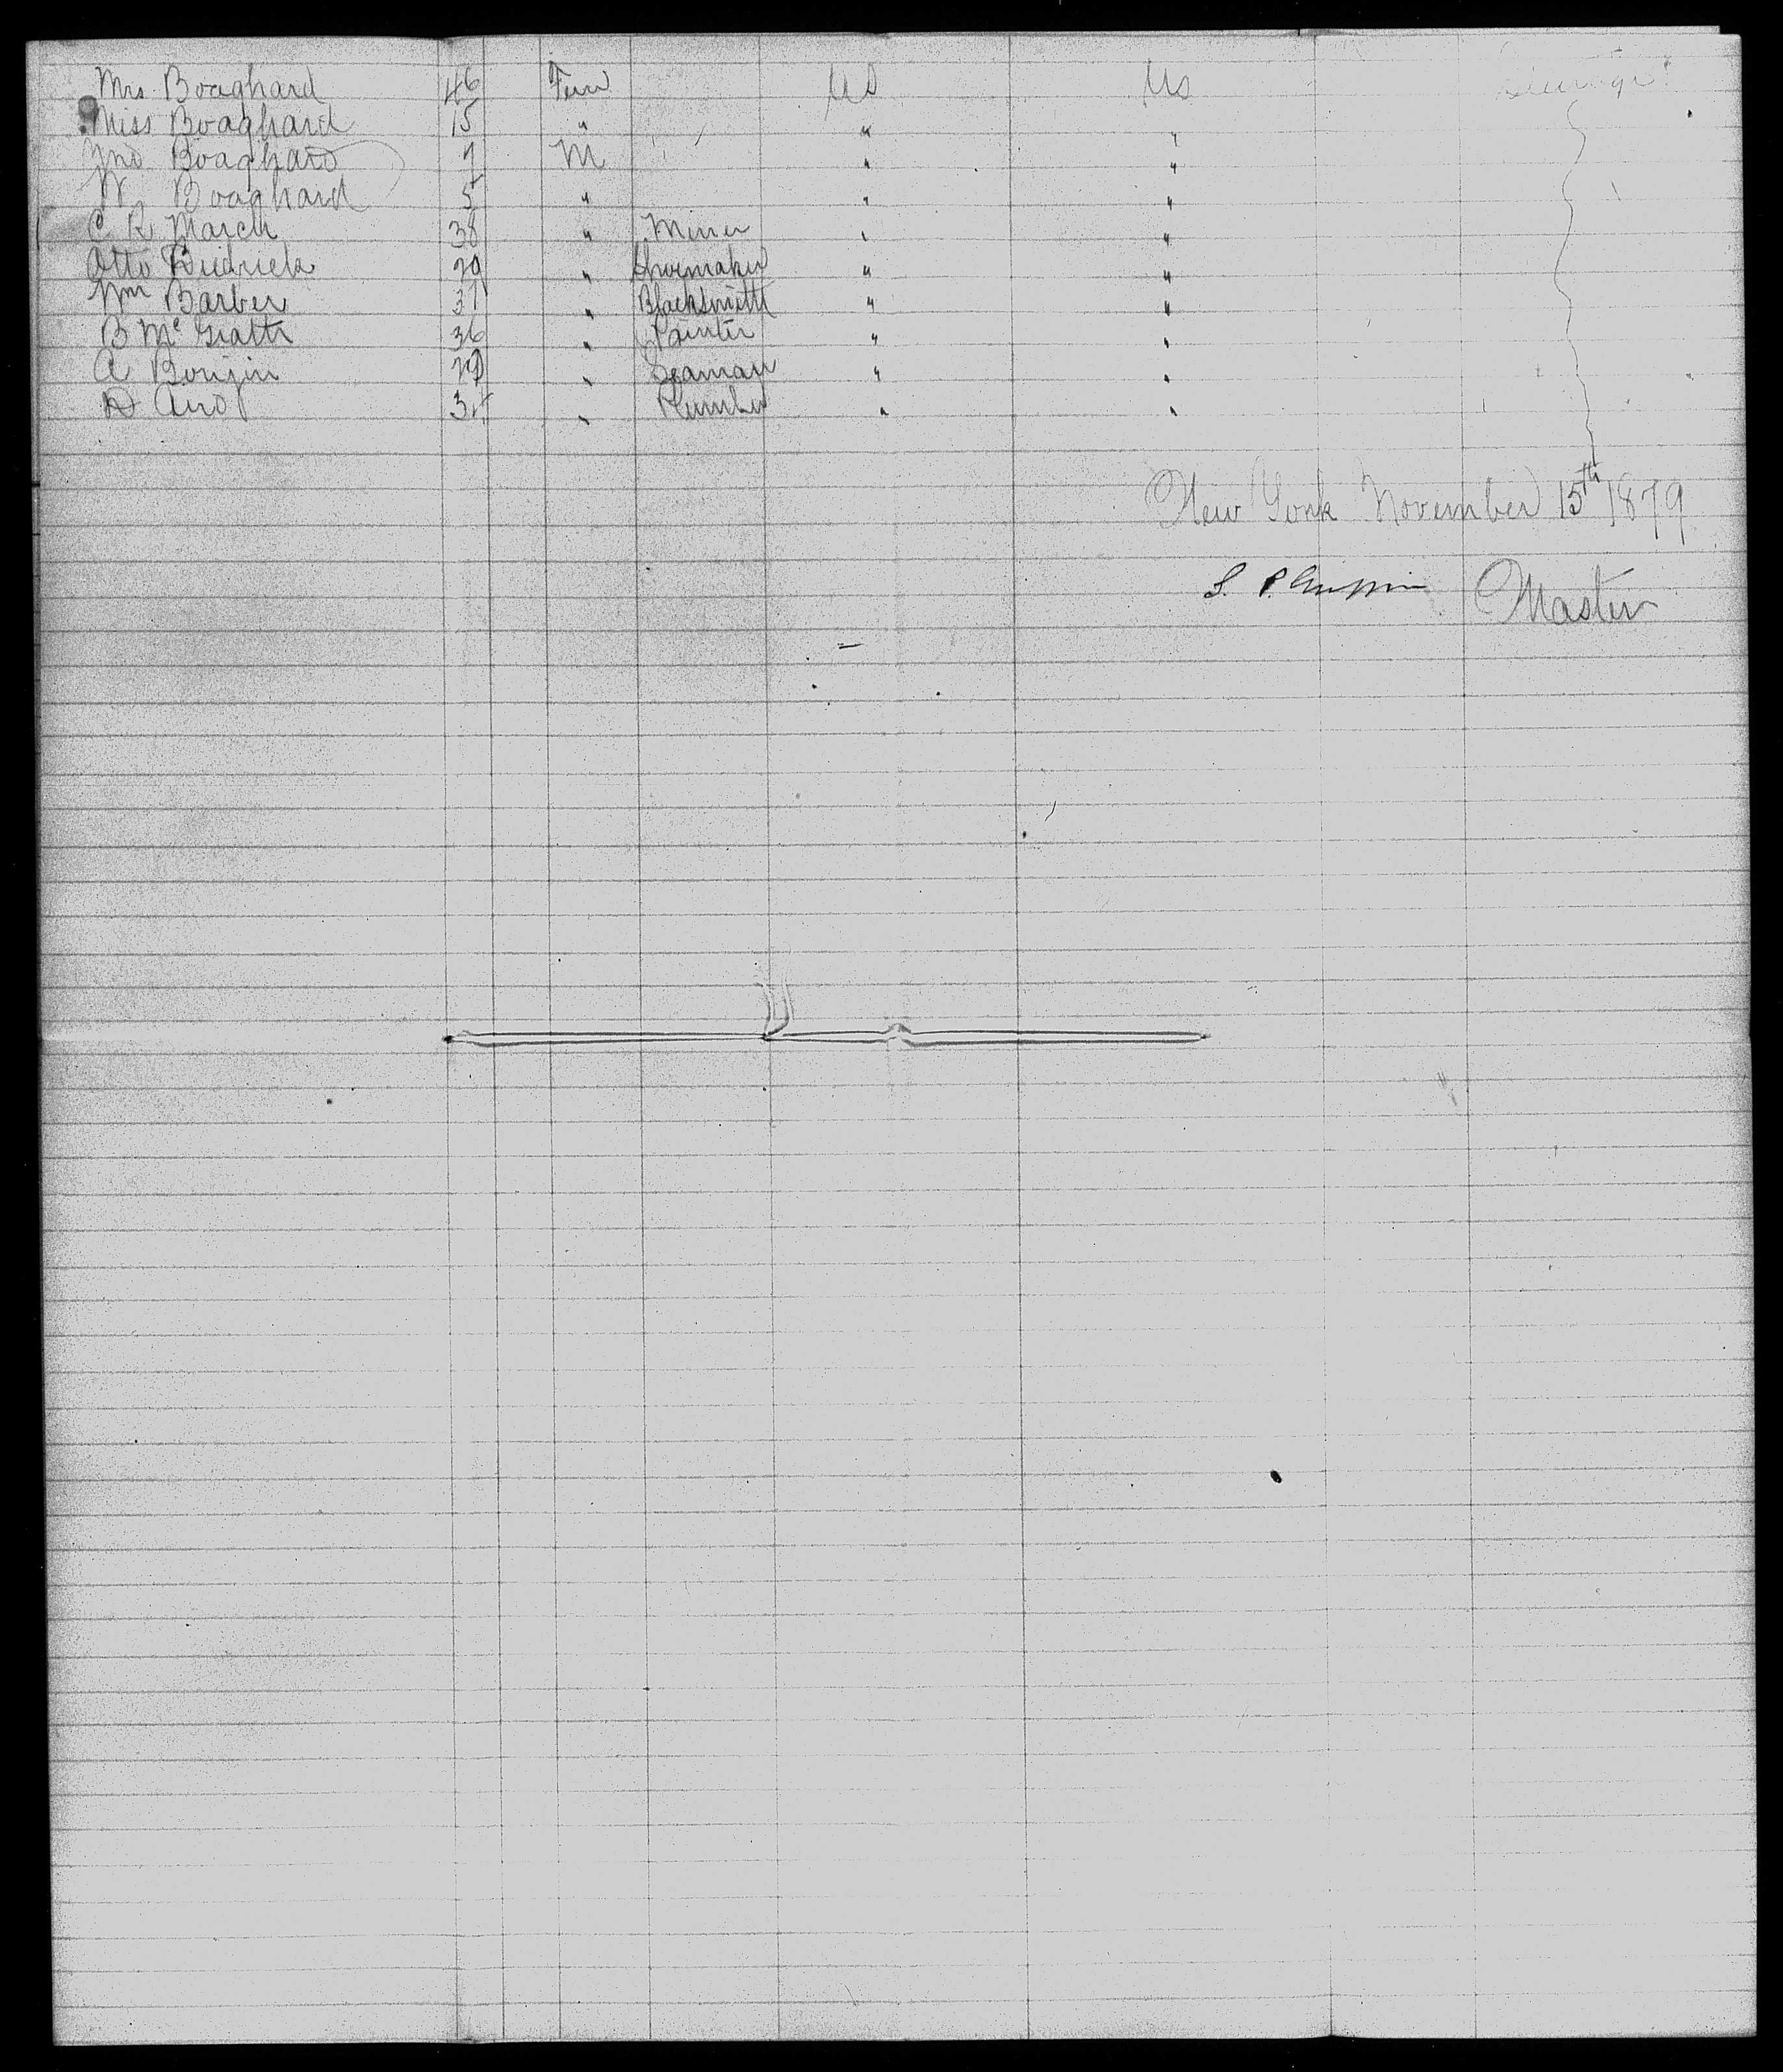 Mrs Boaghard 46 Fem US US Steerage
Miss Boaghard 15 " " "
Jno Boaghard 7 M " "
W Boaghard 5 " " "
C R March 38 " Miner " "
Otto Diedrick 29 " Shoemaker " "
Wm Barber 31 " Blacksmith " "
B McGrath 36 " Painter " "
A 29 " Seaman " "
D 34 " Plumber " "
New York November 15th 1879
S. P. Griffin Master